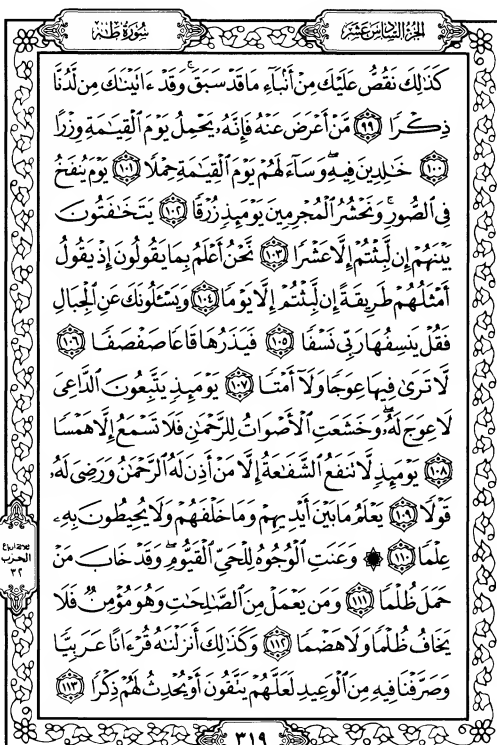 الجزء السادس عشر
سورة طه
كَذَٰلِكَ نَقُصُّ عَلَيْكَ مِنْ أَنۢبَآءِ مَا قَدْ سَبَقَ ۚ وَقَدْ ءَاتَيْنَٰكَ مِن لَّدُنَّا
ذِكْرًا ٩٩ مَّنْ أَعْرَضَ عَنْهُ فَإِنَّهُۥ يَحْمِلُ يَوْمَ ٱلْقِيَٰمَةِ وِزْرًا
١٠٠ خَٰلِدِينَ فِيهِ ۖ وَسَآءَ لَهُمْ يَوْمَ ٱلْقِيَٰمَةِ حِمْلًا ١٠١ يَوْمَ يُنفَخُ
فِى ٱلصُّورِ ۚ وَنَحْشُرُ ٱلْمُجْرِمِينَ يَوْمَئِذٍ زُرْقًا ١٠٢ يَتَخَٰفَتُونَ
بَيْنَهُمْ إِن لَّبِثْتُمْ إِلَّا عَشْرًا ١٠٣ نَّحْنُ أَعْلَمُ بِمَا يَقُولُونَ إِذْ يَقُولُ
أَمْثَلُهُمْ طَرِيقَةً إِن لَّبِثْتُمْ إِلَّا يَوْمًا ١٠٤ وَيَسْـَٔلُونَكَ عَنِ ٱلْجِبَالِ
فَقُلْ يَنسِفُهَا رَبِّى نَسْفًا ١٠٥ فَيَذَرُهَا قَاعًا صَفْصَفًا ١٠٦
لَّا تَرَىٰ فِيهَا عِوَجًا وَلَآ أَمْتًا ١٠٧ يَوْمَئِذٍ يَتَّبِعُونَ ٱلدَّاعِىَ
لَا عِوَجَ لَهُۥ ۖ وَخَشَعَتِ ٱلْأَصْوَاتُ لِلرَّحْمَٰنِ فَلَا تَسْمَعُ إِلَّا هَمْسًا
١٠٨ يَوْمَئِذٍ لَّا تَنفَعُ ٱلشَّفَٰعَةُ إِلَّا مَنْ أَذِنَ لَهُ ٱلرَّحْمَٰنُ وَرَضِىَ لَهُۥ
قَوْلًا ١٠٩ يَعْلَمُ مَا بَيْنَ أَيْدِيهِمْ وَمَا خَلْفَهُمْ وَلَا يُحِيطُونَ بِهِۦ
عِلْمًا ١١٠ ۞ وَعَنَتِ ٱلْوُجُوهُ لِلْحَىِّ ٱلْقَيُّومِ ۖ وَقَدْ خَابَ مَنْ
حَمَلَ ظُلْمًا ١١١ وَمَن يَعْمَلْ مِنَ ٱلصَّٰلِحَٰتِ وَهُوَ مُؤْمِنٌ فَلَا
يَخَافُ ظُلْمًا وَلَا هَضْمًا ١١٢ وَكَذَٰلِكَ أَنزَلْنَٰهُ قُرْءَانًا عَرَبِيًّا
وَصَرَّفْنَا فِيهِ مِنَ ٱلْوَعِيدِ لَعَلَّهُمْ يَتَّقُونَ أَوْ يُحْدِثُ لَهُمْ ذِكْرًا ١١٣
ثلاثة أرباع
الحزب
٣٢
٣١٩